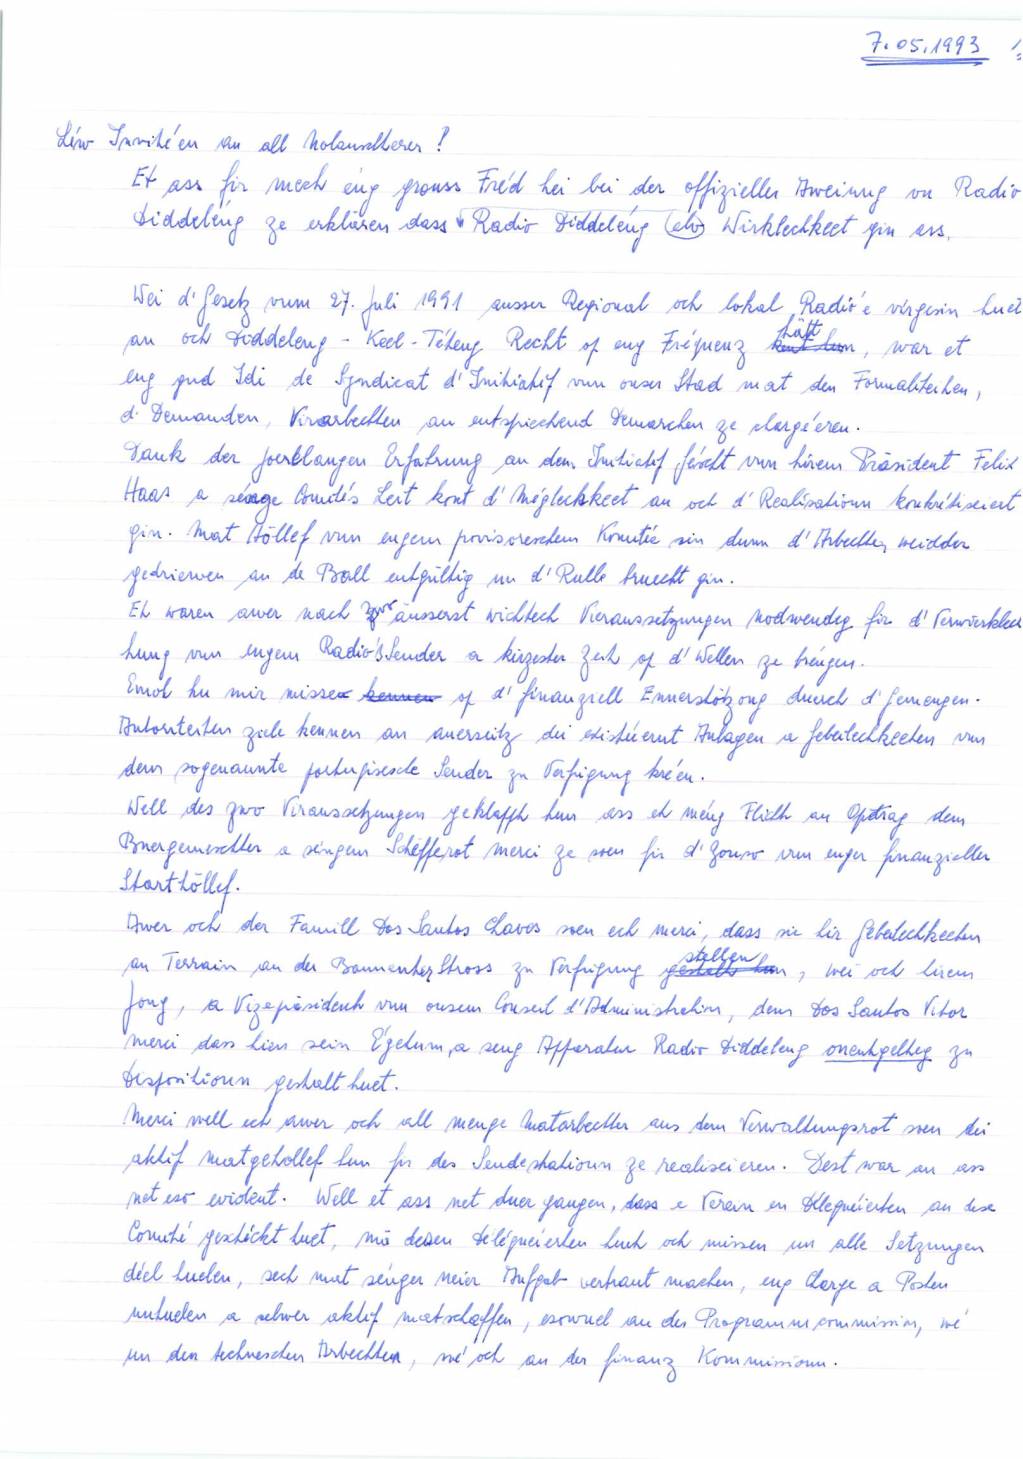 7.05.1993
Léiw Invitéen an all Nolauschterer!
Et ass fir mech eng grouss Fréd hei bei der offizieller Aweiung vu Radio
Diddeléng ze erklären dass Radio Diddeléng elo Wirklechkeet gin ass.
Wei d'Gesetz vum 27. Juli 1991 ausser Regional och lokal Radio'e virgesin huet
an och Diddeleng - Keel - Téteng Recht op eng Fréquenz hätt, war et
eng gud Idi de Syndicat d'Initiatif vun ouser Stad mat den Formaliteiten,
d'Demanden, Virarbechten an entspriechend Demarchen ze chargéeren.
Dank der joerlangen Erfahrung an dem Initiatif geecht vun hirem Präsident Felix
Haas a sénge Comités Leit kont d'Méglechkeet an och d'Realisatioun konkrétiséiert
gin. Mat Höllef vun engem provisoreschem Komitée sin dunn d'Arbechten weidder
gedriewen an de Ball entgültig un d'Rulle bruecht gin.
Et waren awer nach zwo äusserst wichtech Vieraussetzungen nodwendeg fir d'Verwierklec
hung vun engem Radio's Sender a kirzester Zeit op d'Wellen ze brengen.
Emol hu mir misse op d'finanziell Ennerstötzong duerch d'Gemengen-
Autoriteiten ziele kennen an anerseitz dei existéiernt Anlagen a Gebeilechkeeten vun
dem sogenannte portugisesche Sender zu Verfigung kréen.
Well des zwo Viraussetzungen geklappt hun ass et méng Flicht am Optrag dem
Buergermeschter a séngem Schefferot Merci ze soen fir d'Zouso vun enger finanzieller
Starthöllef.
Awer och der Famill Dos Santos Chaves soen ech merci, dass sie hir Gebeilechkeeten
an Terrain an der Bannenter Stross zu Verfigung stellen, wei och hirem
Jong, a Vizepräsident vun ousem Conseil d'Administration, dem Dos Santos Vitor
merci dass hien sein Égetum, a seng Apparaten Radio Diddeleng onentgelteg zu
Dispositioun gestallt huet.
Merci well ech awer och all menge Matarbechter aus dem Verwaltungsrot soen dei
aktif matgehollef hun fir des Sendestatioun ze realiseieren. Dest war an ass
net eso evident. Well et ass net duer gaangen, dass e Verain en Délegéierten an dese
Comité geschéckt huet, mä desen Délégéierten huet och missen un alle Setzungen
déel huelen, sech mat sénger neier Aufgab vertraut machen, eng Charge a Posten
unhuelen a selwer aktif matschaffen, esouwuel an der Programmcommission, wé
un den techneschen Arbechten, wé och an der finanz Kommissioun.